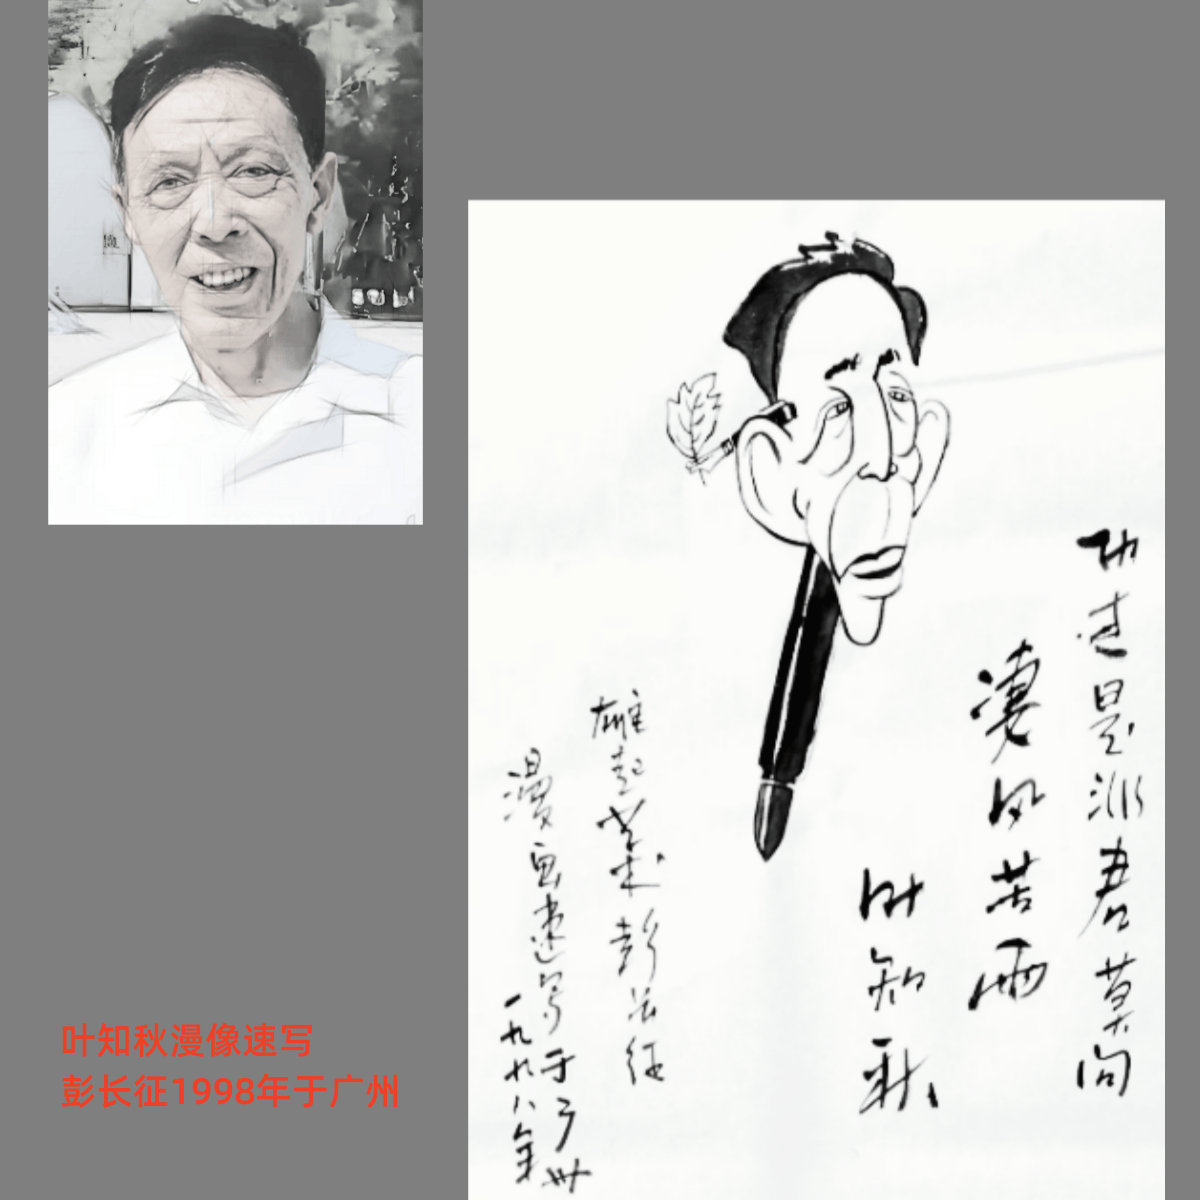 功过是非君莫问
凄风苦雨
叶知秋
雄起
彭长征
漫画速写于广州
一九九八年
叶知秋漫像速写
彭长征1998年于广州